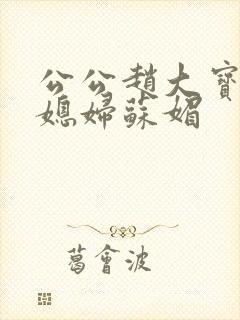 公公趙大寶
媳婦蘇媚
葛會波